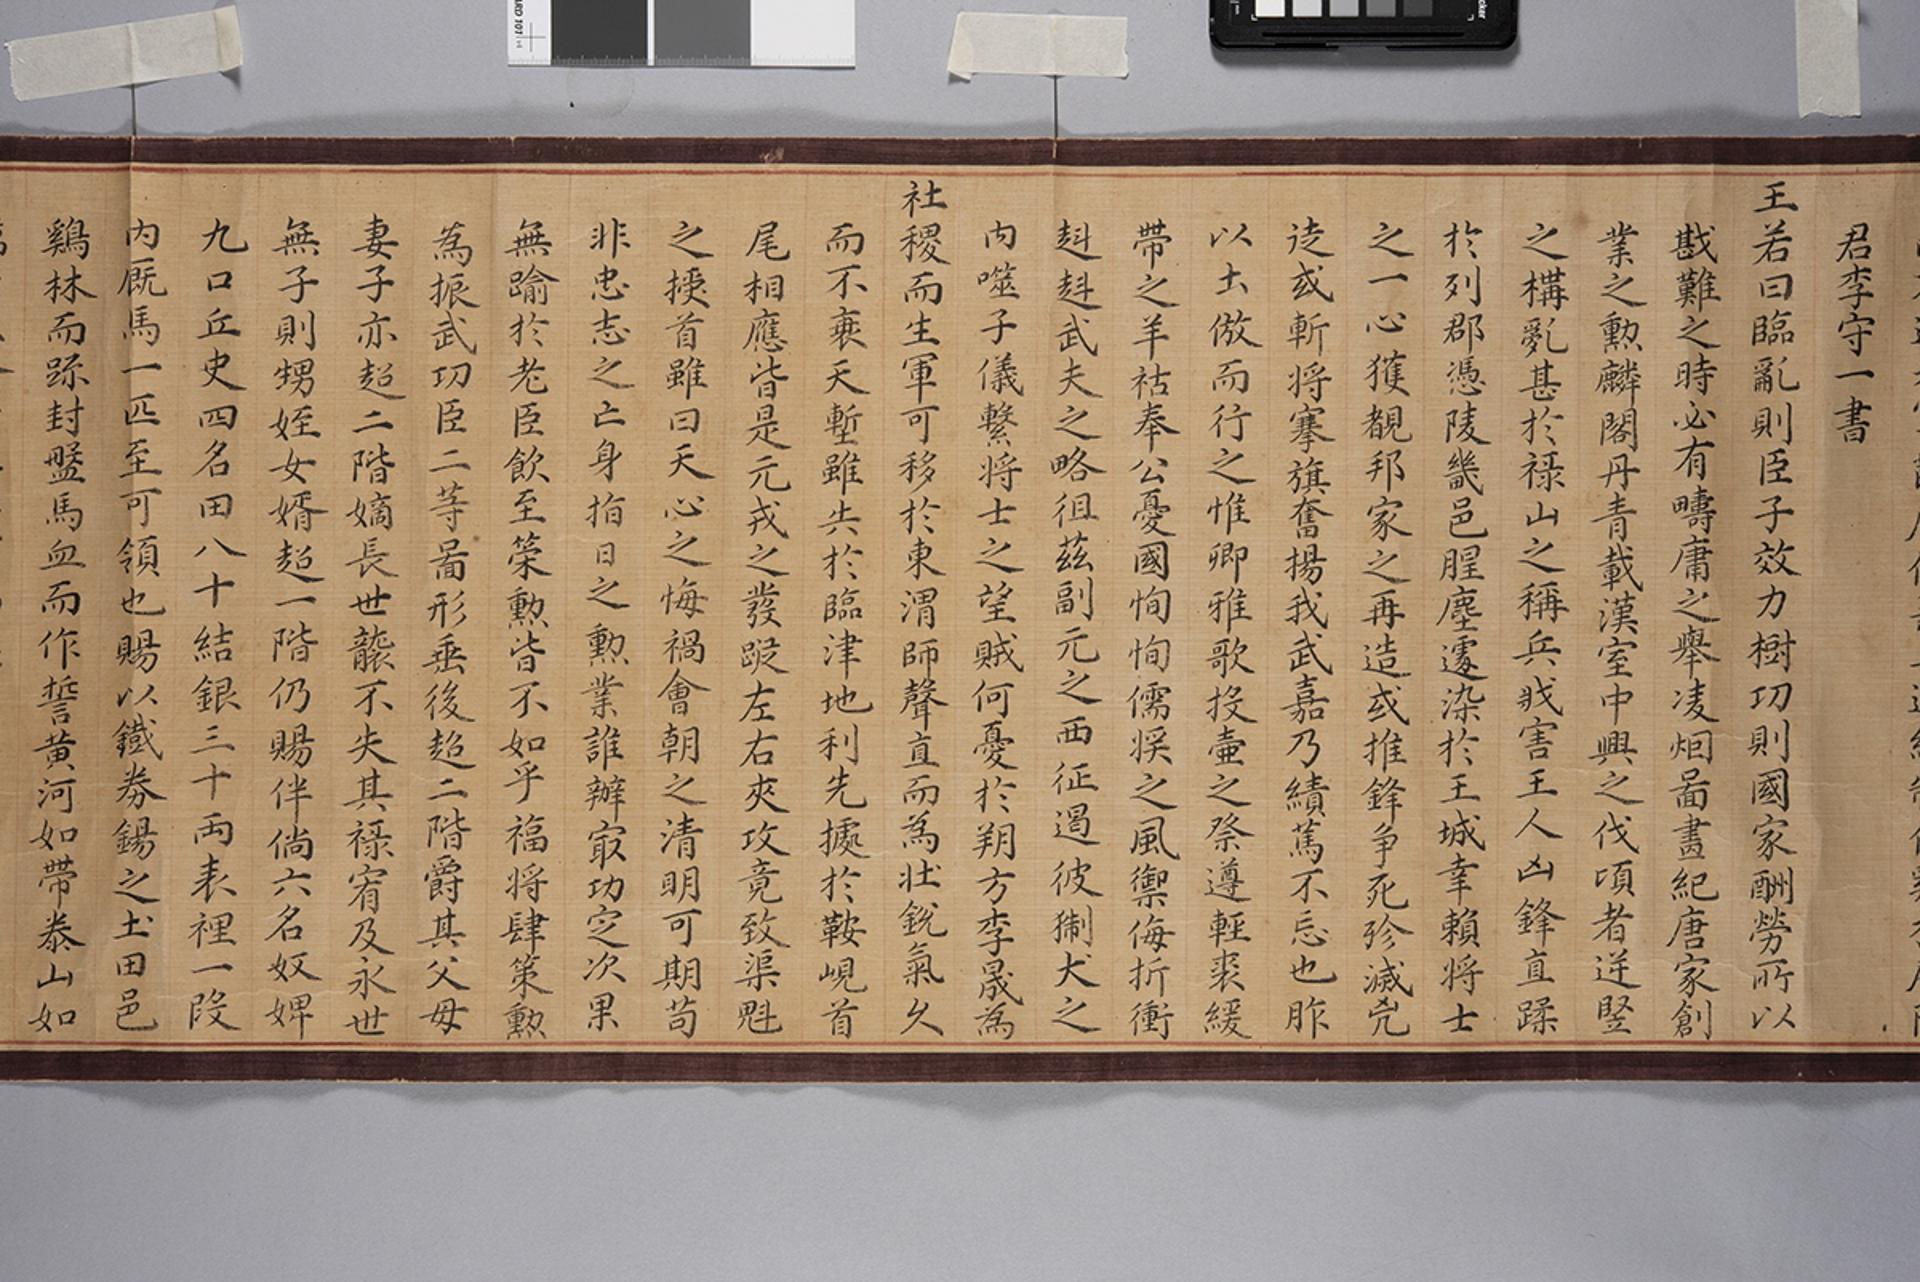 君李守一書
王若曰臨亂則臣子效力樹功則國家酬勞所以
戡難之時必有疇庸之舉凌烟啚畫紀唐家創
業之勲麟閣丹青載漢室中興之伐頃者逆竪
之構亂甚於禄山之稱兵戕害王人凶鋒直蹂
於列郡憑陵畿邑腥塵遽染於王城幸賴将士
之一心獲覩邦家之再造或推鋒争死殄滅兇
徒或斬将搴旗奮揚我武嘉乃績篤不忘也胙
以土倣而行之惟卿雅歌投壷之祭遵輕裘緩
帶之羊祜奉公憂國恂恂儒将之風禦侮折衝
赳赳武夫之略徂茲副元之西征遏彼猘犬之
内噬子儀繫将士之望賊何憂於朔方李晟為
社稷而生軍可移於東渭師聲直而為壯銳氣久
而不衰天塹雖失於臨津地利先據於鞍峴首
尾相應皆是元戎之發蹤左右夾攻竟致渠魁
之㨗首雖曰天心之悔禍會朝之清明可期苟
非忠志之亡身指日之勲業誰辦㝡功定次果
無踰於老臣飲至策勲皆不如乎福将肆策勲
為振武功臣二等啚形垂後超二階爵其父母
妻子亦超二階嫡長世襲不失其禄宥及永世
無子則甥姪女婿超一階仍賜伴倘六名奴婢
九口丘史四名田八十結銀三十両表裡一段
内厩馬一匹至可領也賜以鐵券錫之土田邑
鷄林而疏封盬馬血而作誓黄河如帶泰山如